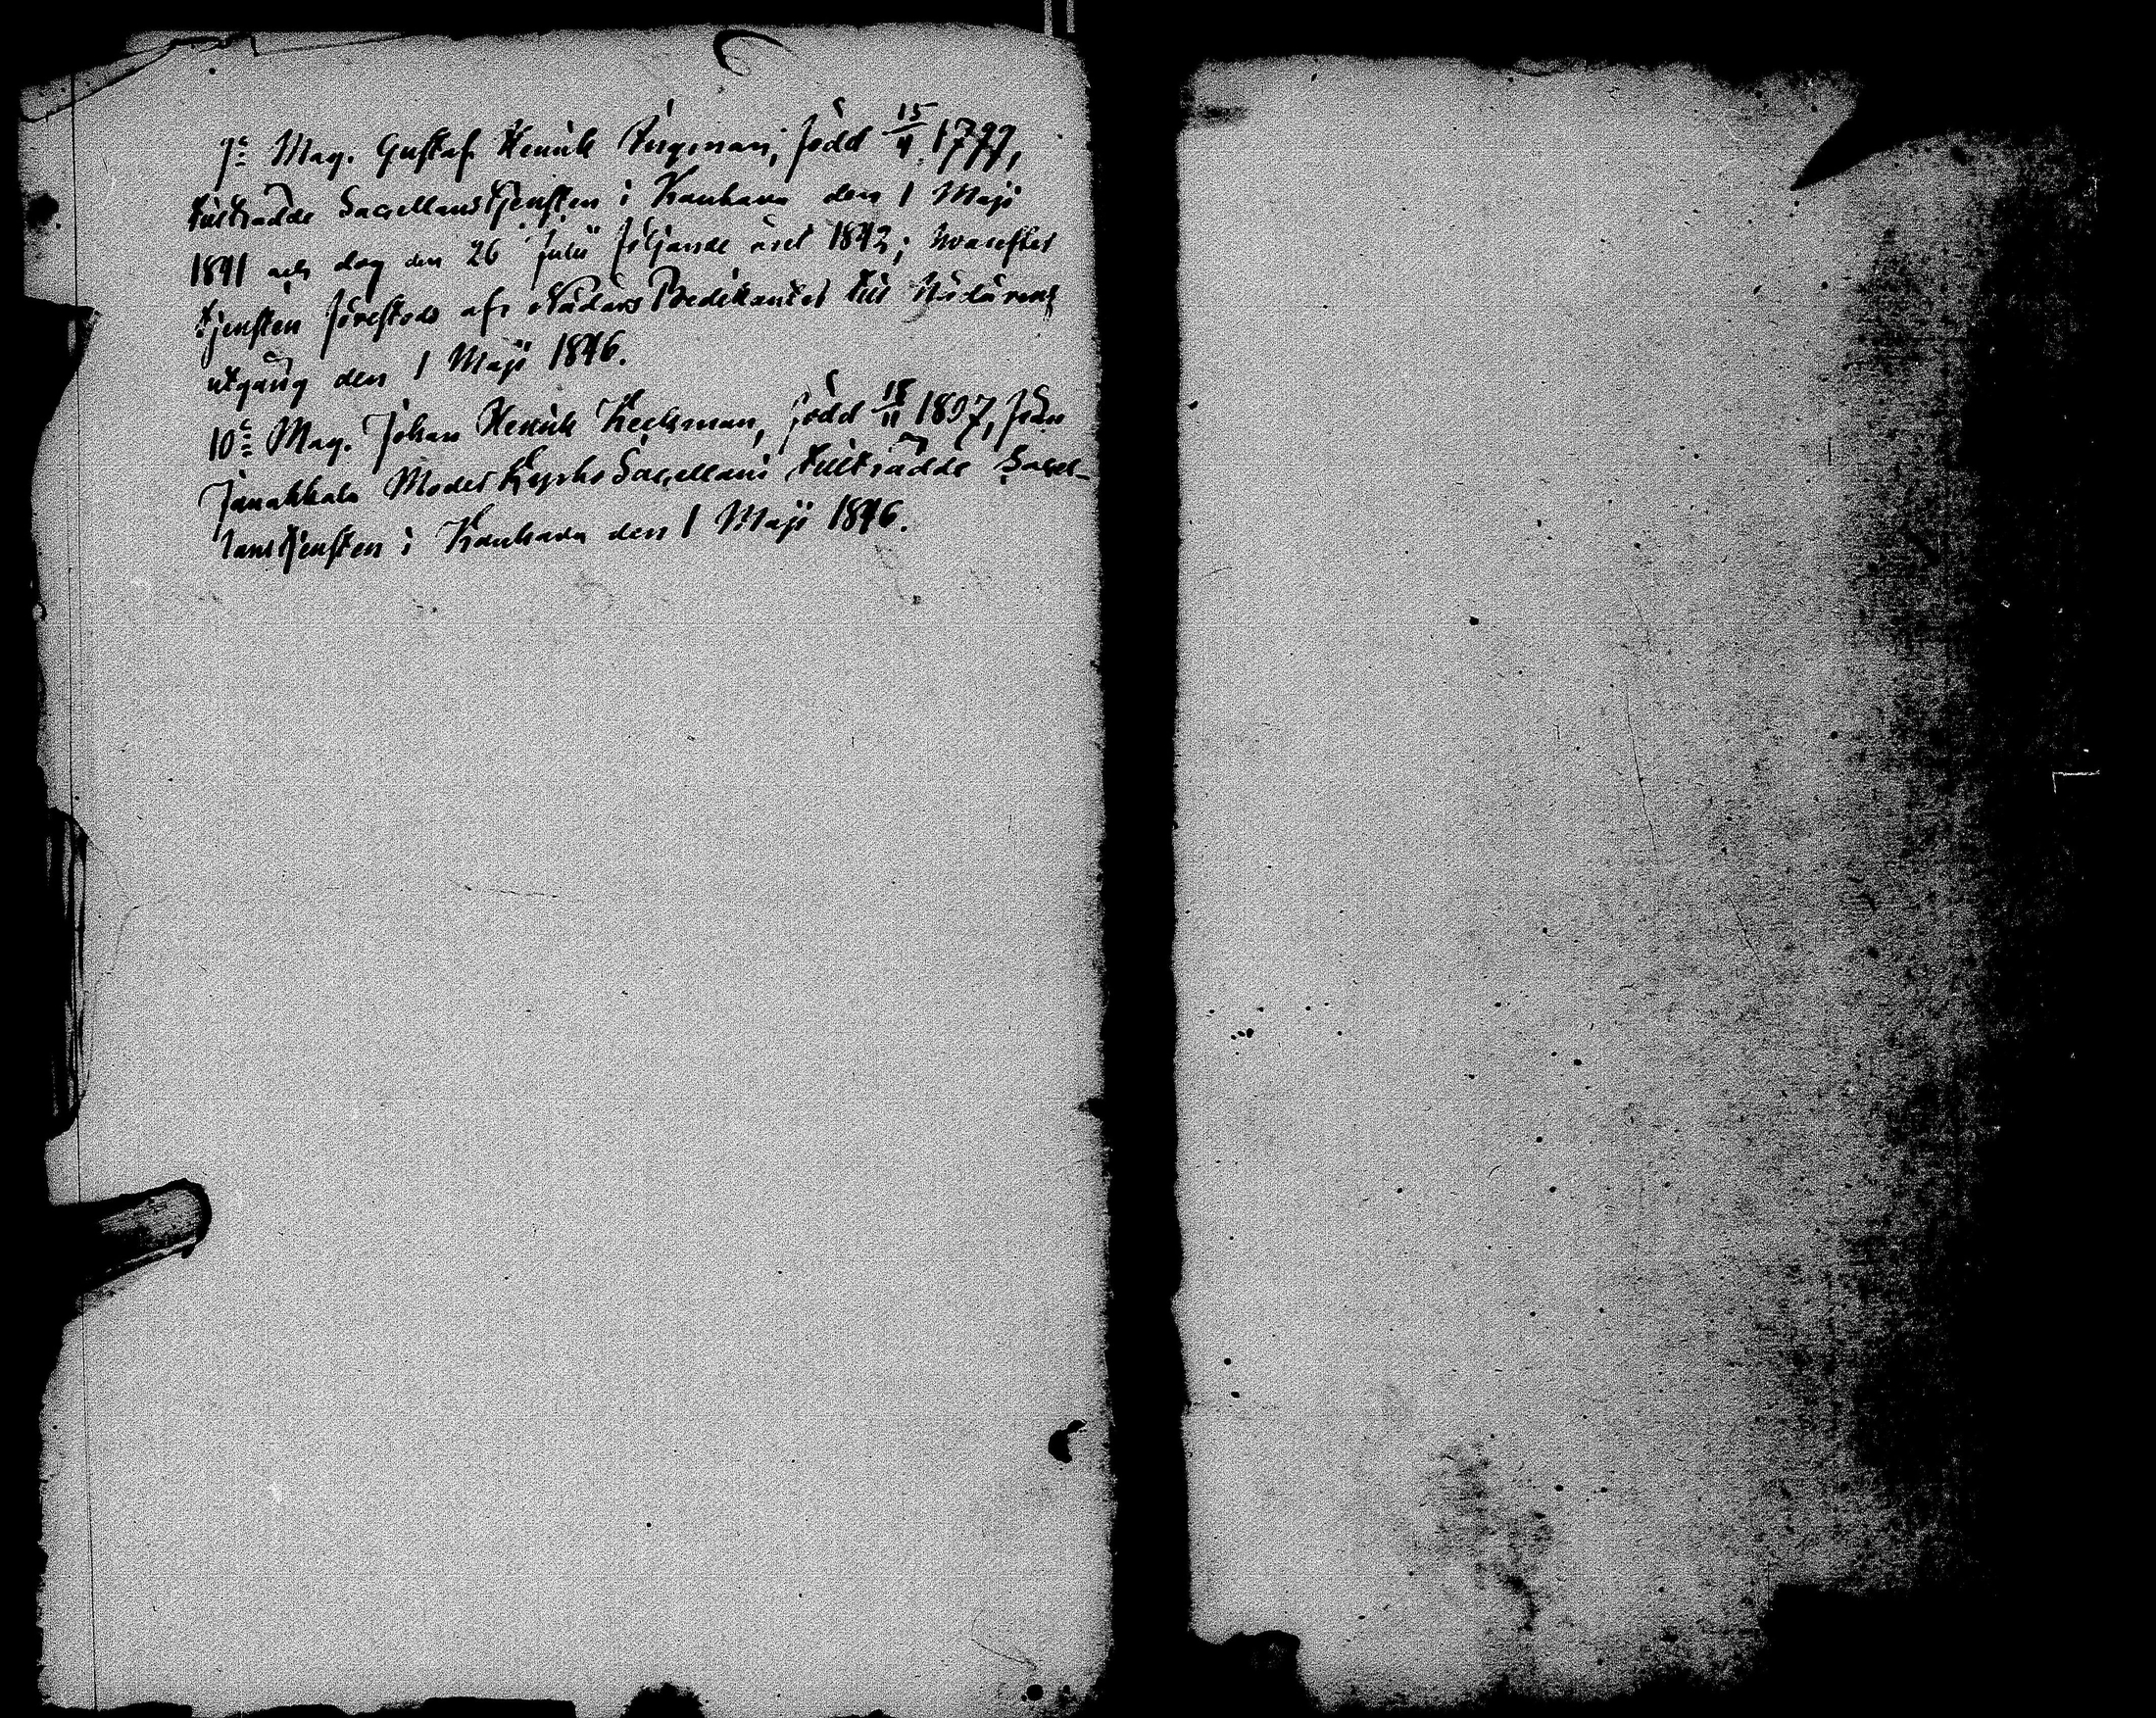 9:e Mag. Gustaf Henrik Bergman, född 15/4 1797,
tillträdde Sacellanstjensten i Kauhava den 1 Maji
1841 och dog den 26 Julii följande året 1842; hvarefter
tjensten förestods af Nådårs Predikanter till Nådårens
utgång den 1 Maji 1846.
10:e Mag. Johan Henrik Keckman, född 18/11 1807, från
Janakkala Moder Kyrko Sacellani tillträdde Sacel-
lanstjensten i Kauhava den 1 Maji 1846.